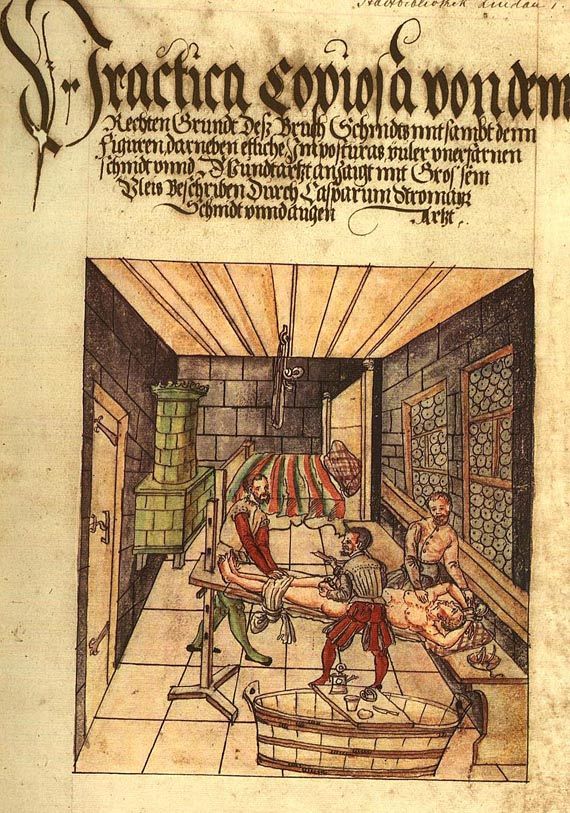 Stadtbibliothek Lindau
Practica Copiosa von dem
Rechten Grundt Deß Bruch Schnidts mit sambt denn
Figuren darneben etliche Imposturas viler vnerfarnen
schnidt vnnd Wundtärtzt anzaigt mit Grossem
Vleis Beschriben Durch Casparum Stromayr
Schnidt vnnd augen Artzt.